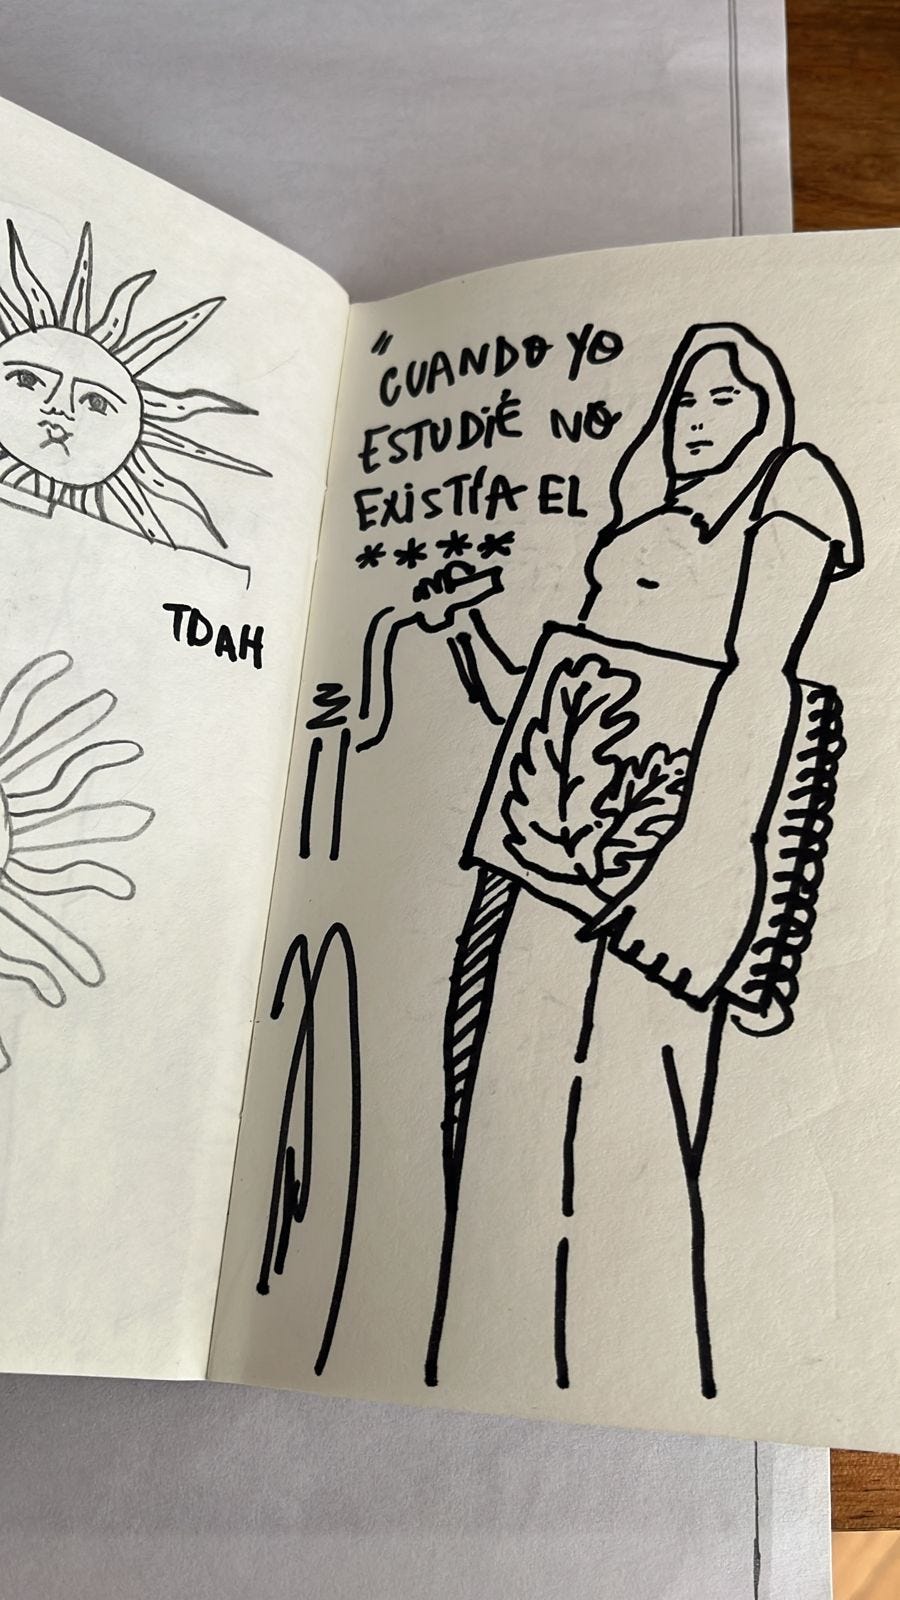 "CUANDO YO
ESTUDIÉ NO
EXISTÍA EL
****
TDAH